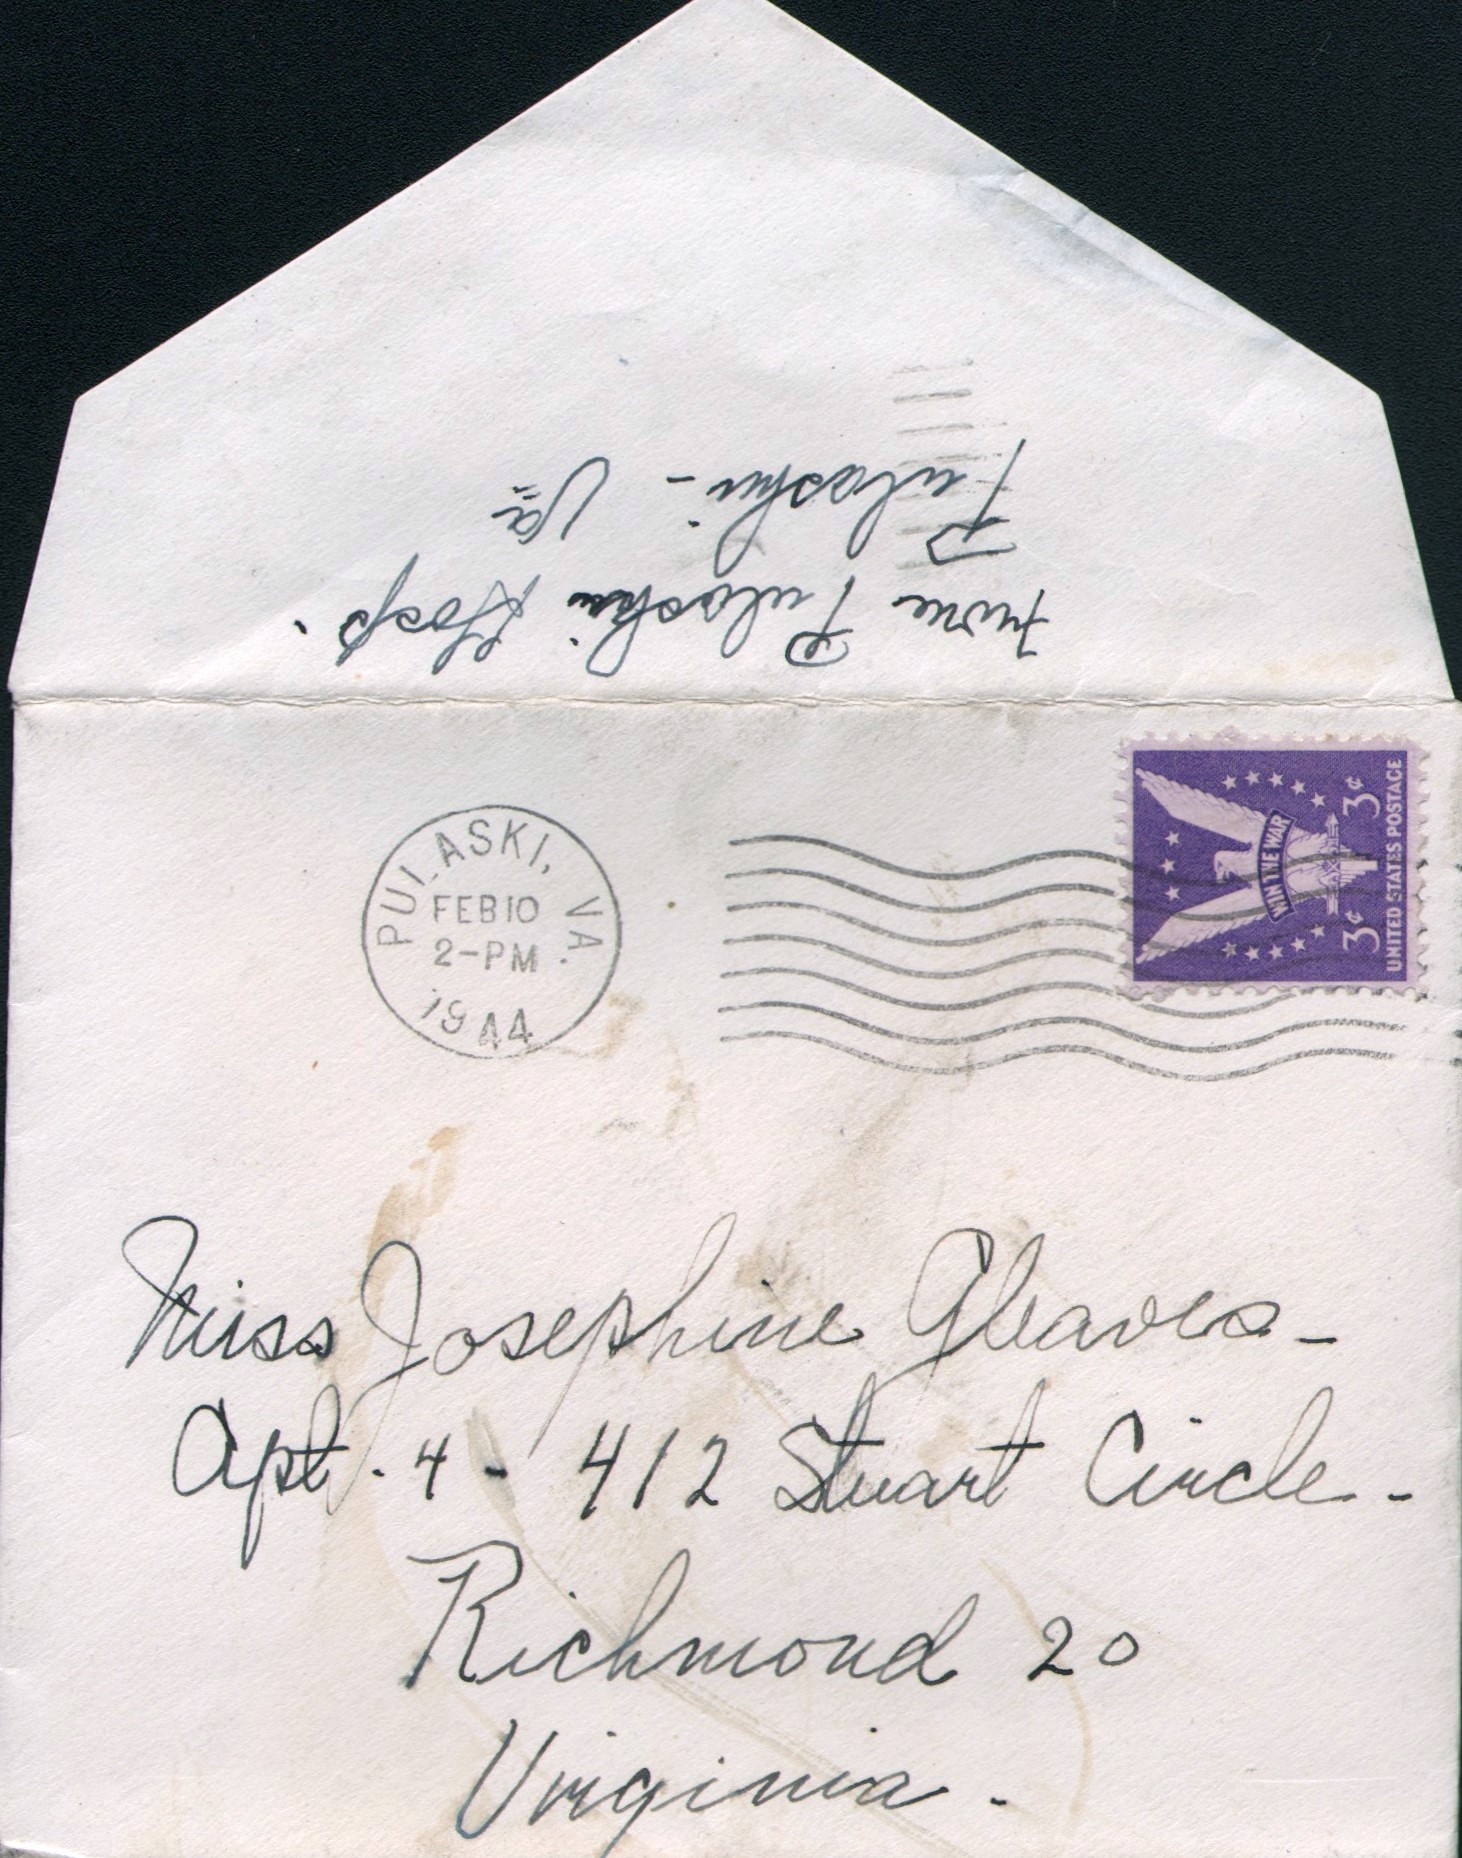 from Pulaski Hosp.
Pulaski - Va
PULASKI, VA.
FEB 10
2-PM
1944
WIN THE WAR
3¢ 3¢
UNITED STATES POSTAGE
Miss Josephine Gleaves -
Apt. 4 - 412 Stuart Circle -
Richmond 20
Virginia .